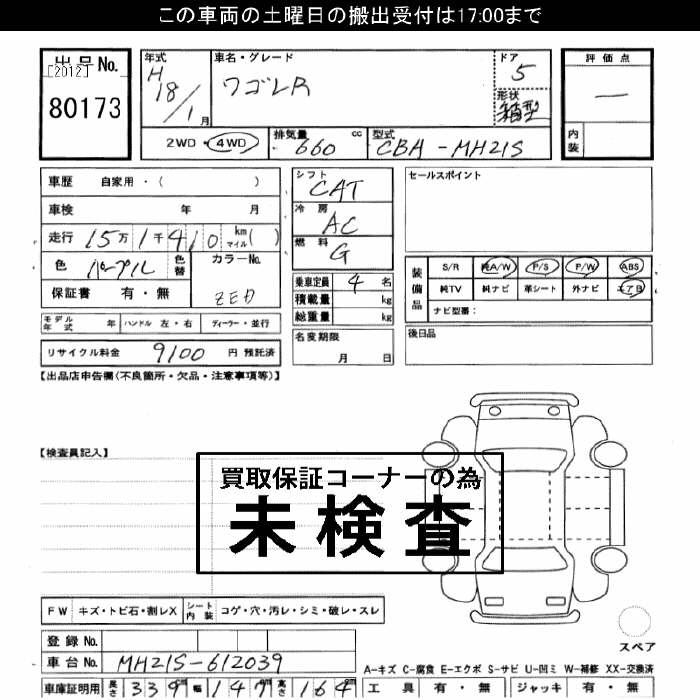 この車両の土曜日の搬出受付は17:00まで
出品No.
[2012]
80173
年式
H
18/1月
車名・グレード
ワゴンR
ドア
5
形状
箱型
評価点
一
内装
2WD・4WD
排気量
660 cc
型式
CBA-MH21S
車歴 自家用・( )
車検 年 月
走行 15万1千410 km マイル( )
色 パープル 色替
カラーNo.
ZED
保証書 有・無
シフト
CAT
冷房
AC
燃料
G
乗車定員 4 名
積載量 kg
総重量 kg
セールスポイント
装備品
S/R 純A/W P/S P/W ABS
純TV 純ナビ 革シート 外ナビ エアB
ナビ型番:
モデル年式 年 ハンドル 左・右 ディーラー・並行
リサイクル料金 9100 円 預託済
名変期限
月 日
後日品
【出品店申告欄(不良箇所・欠品・注意事項等)】
【検査員記入】
買取保証コーナーの為
未検査
FW キズ・トビ石・割レX
シート内装 コゲ・穴・汚レ・シミ・破レ・スレ
スペア
登録No.
車台No. MH21S-612039
A-キズ C-腐食 E-エクボ S-サビ U-凹ミ W-補修 XX-交換済
車庫証明用 長さ 339 幅 147 高さ 164
工具 有・無 ジャッキ 有・無